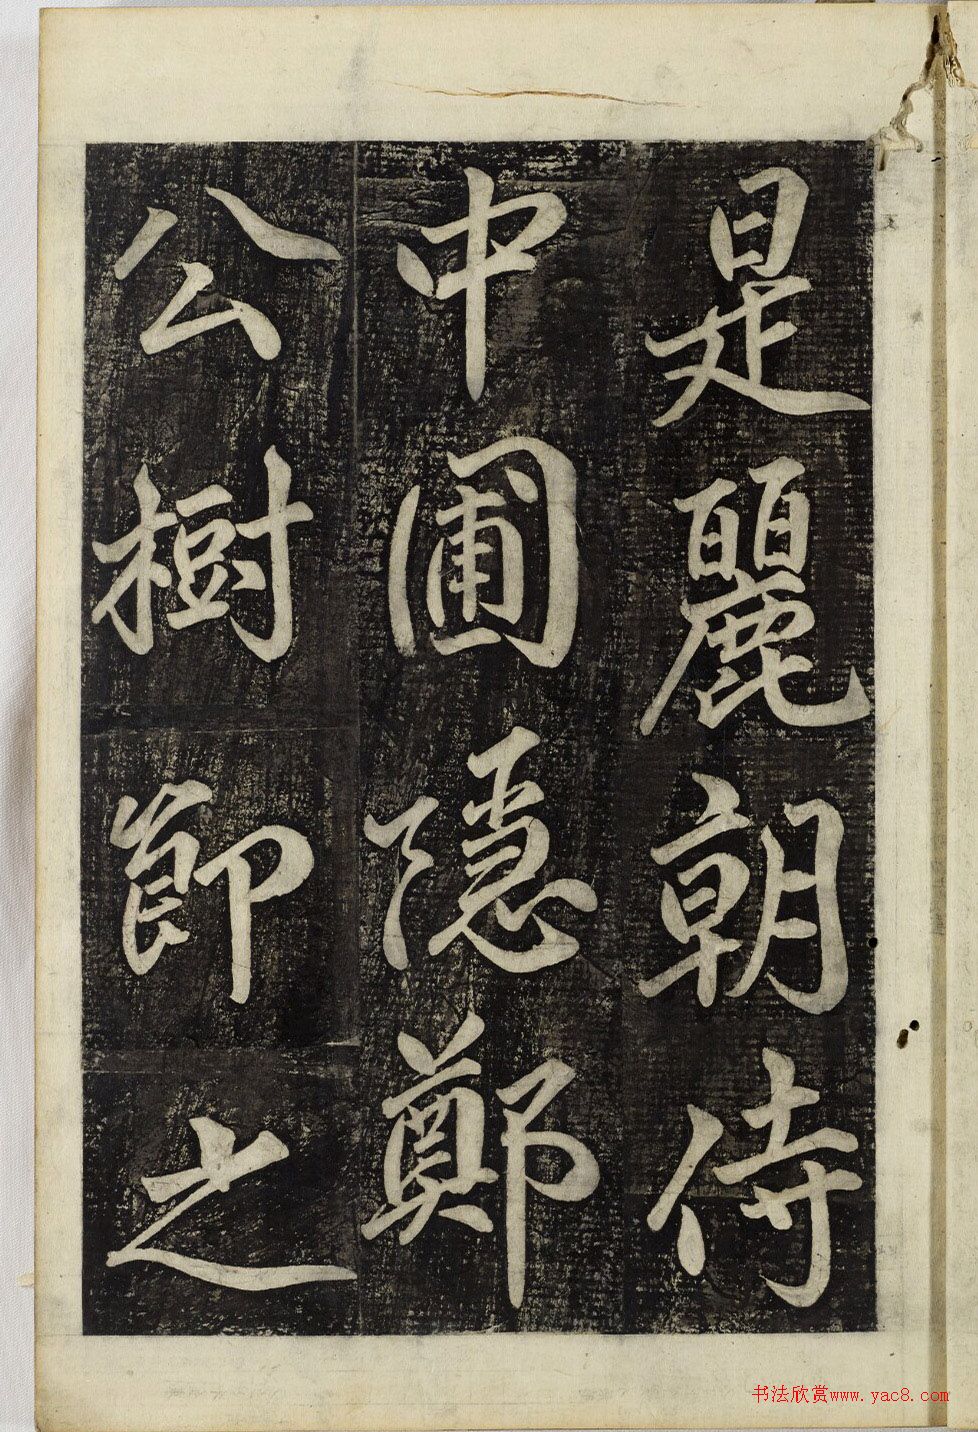 是麗朝侍
中圃隱鄭
公樹節之
书法欣赏www.yac8.com